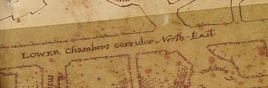 Lower Chambers corridor, North-East